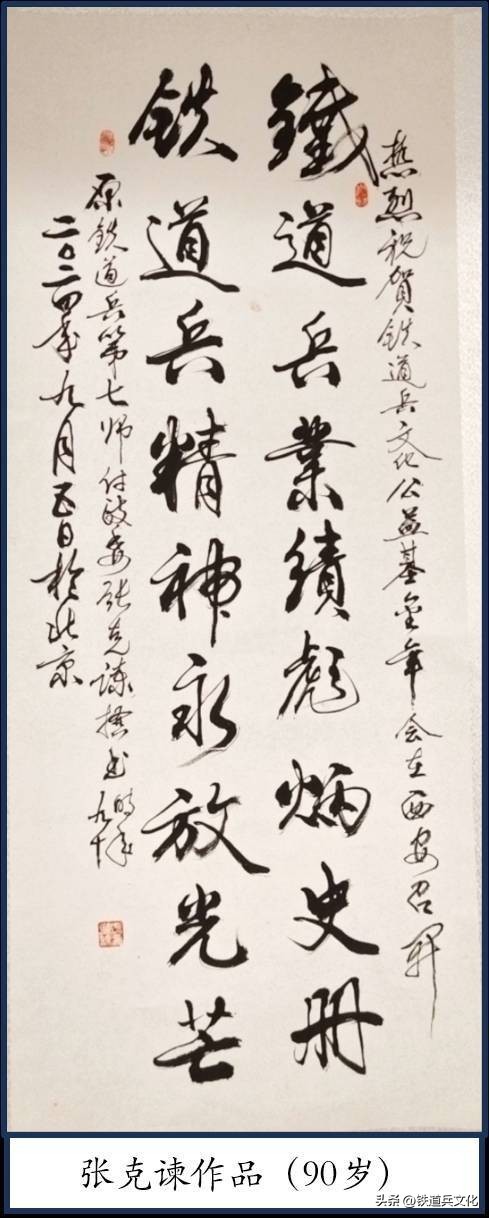 热烈祝贺铁道兵文化公益基金年会在西安召开
鐵道兵業績彪炳史册
铁道兵精神永放光芒
原铁道兵第七师付政委张克谏撰书时年九十
二〇二四年九月五日於北京
张克谏作品（90岁）
头条@铁道兵文化